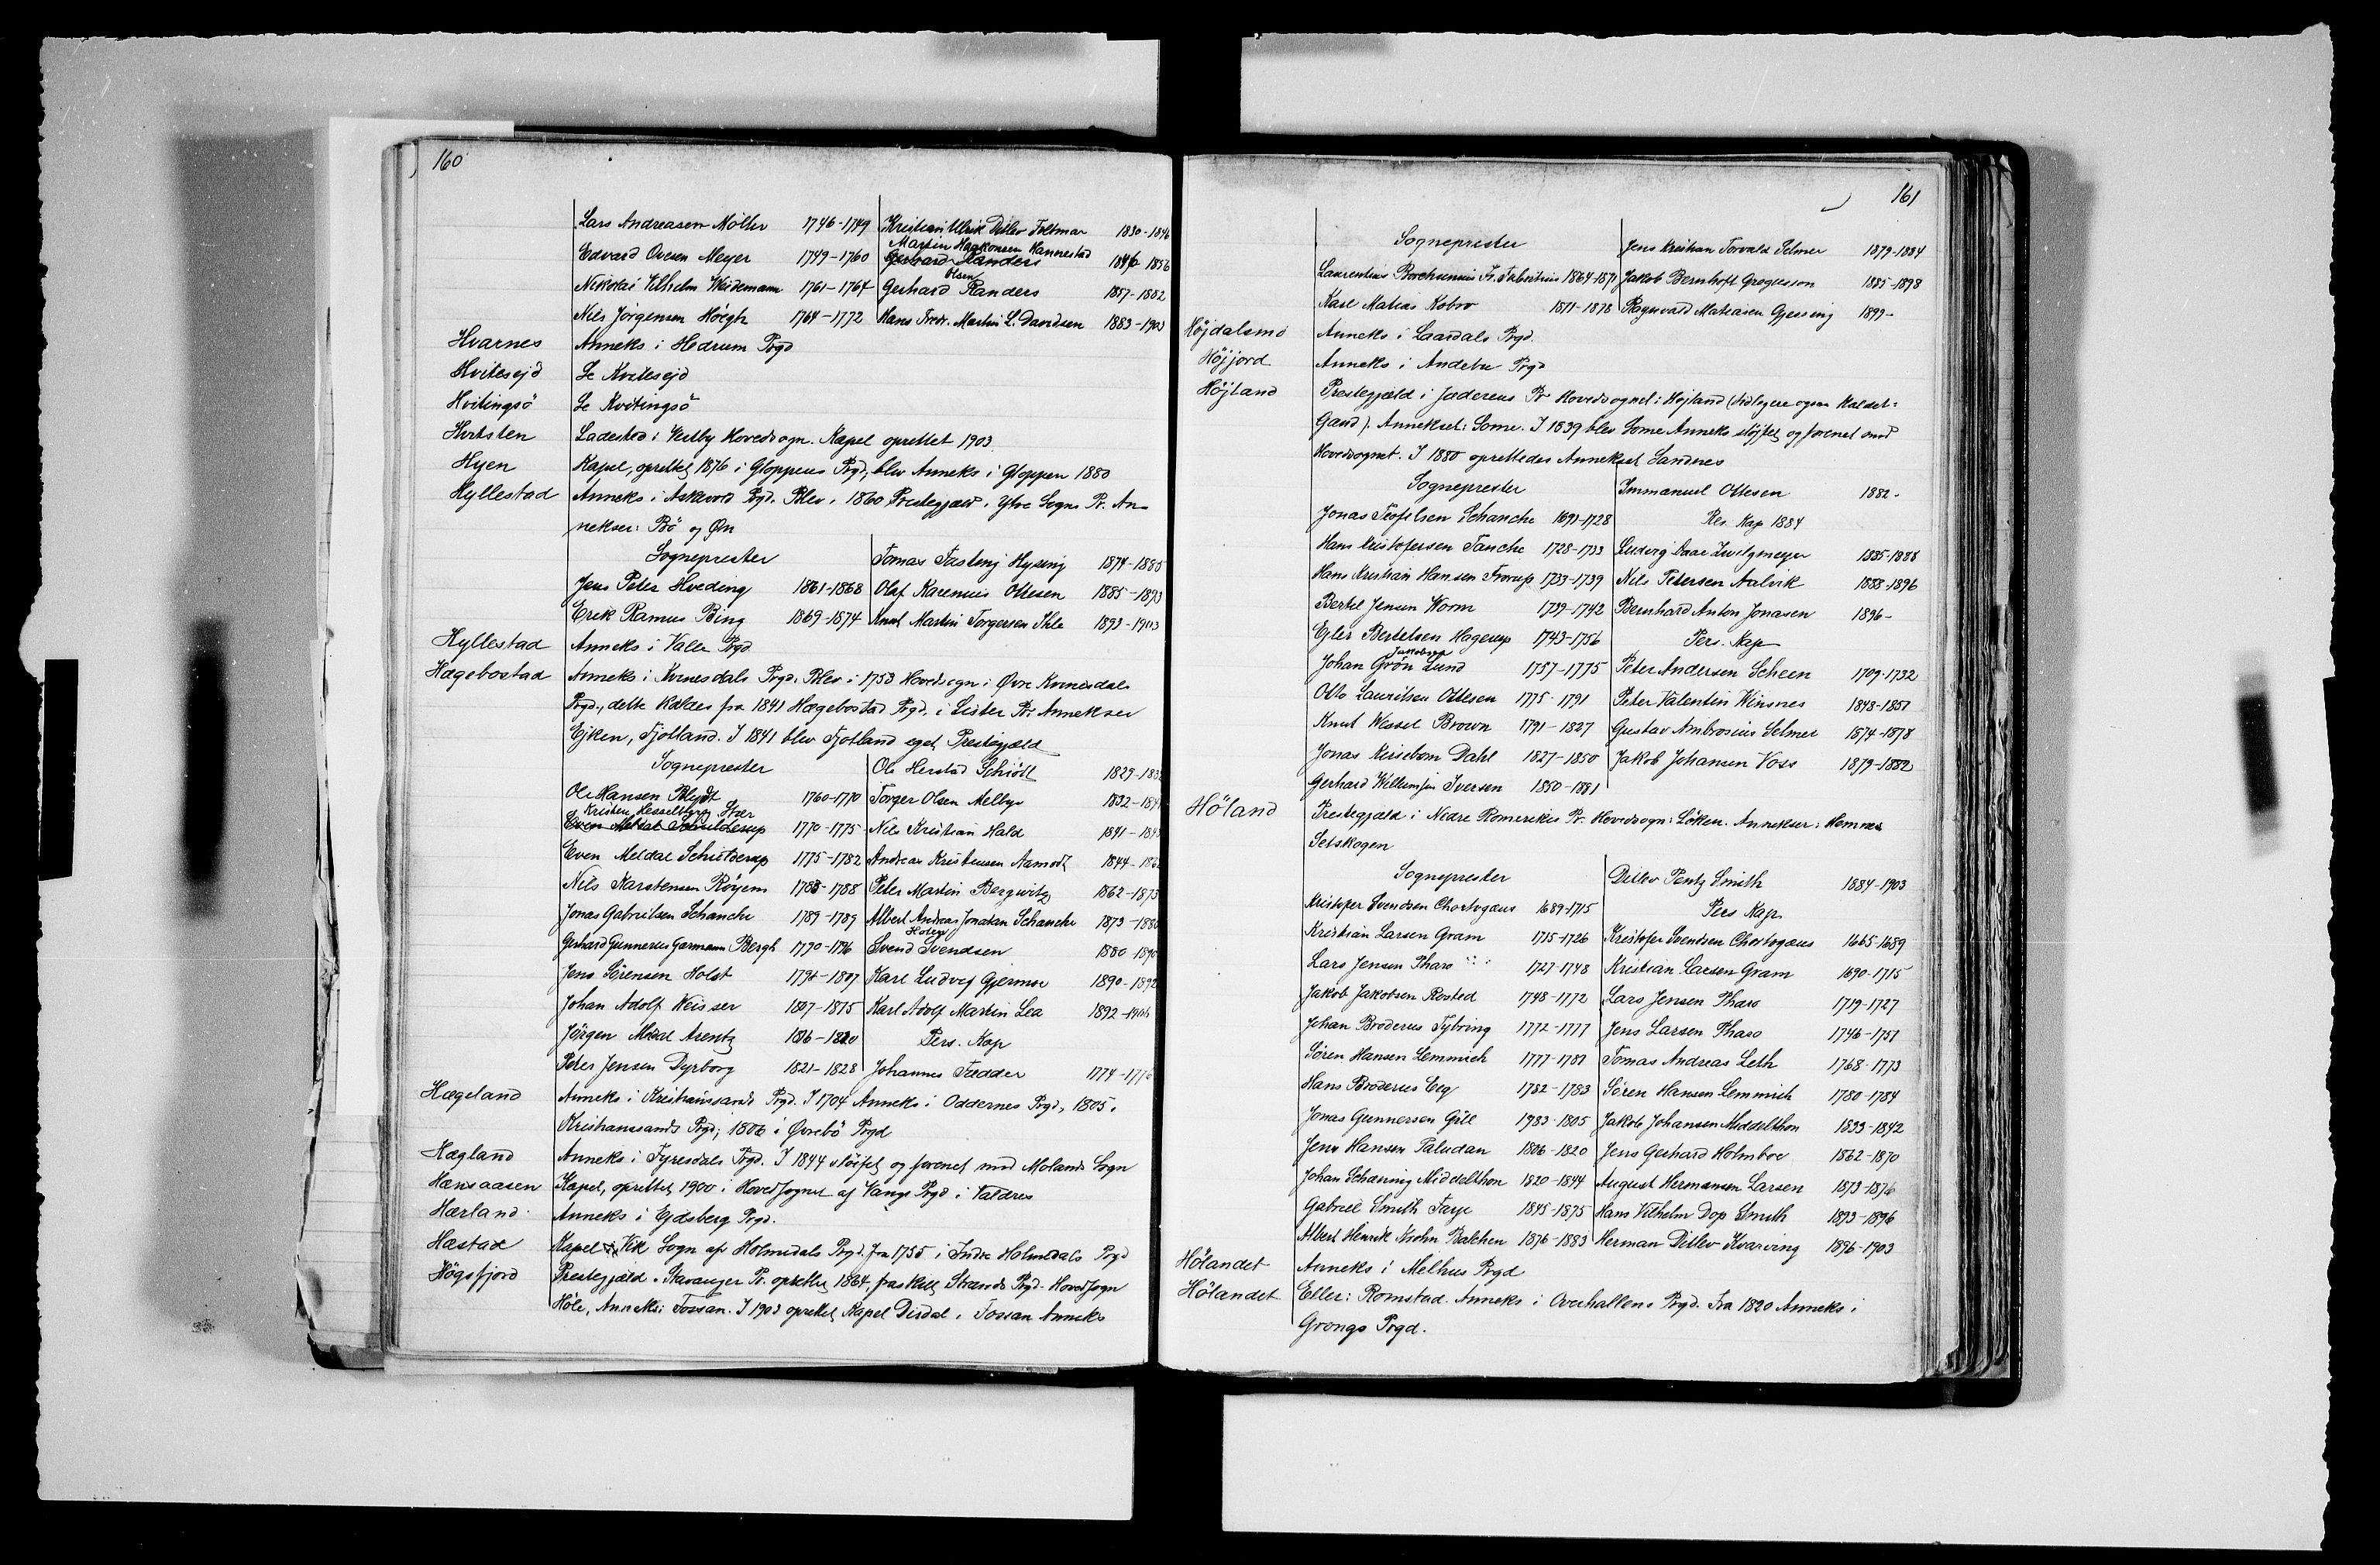 160
Lars Andreasen Möller 1746-1749 Kristian Ulrik Detlev Foltmar 1830-1846
Martin Haakonsen Hannestad
Edvard Ovesen Meyer 1749-1760 Gerhard Randers 1846-1856
Olsen
Nikolai Vilhelm Weidemann 1761-1764 Gerhard Randers 1857-1882
Nils Jörgensen Höegh 1764-1772 Hans Fredr. Martin L. Davidsen 1883-1903
Hvarnes Anneks i Hedrum Prgd
Hvitesejd Se Kvitesejd
Hvitingsö Se Kvitingsö
Hvitsten Ladested i Vestby Hovedsogn. Kapel oprettet 1903
Hyen Kapel, oprettet 1876 i Gloppens Prgd, blev Anneks i Gloppen 1880
Hyllestad Anneks i Askevold Prgd. Blev i 1860 Prestegjæld i Ytre Sogns Pr. An-
nekser: Bö og Øn
Sogneprester Tomas Fasting Hysing 1874-1885
Jens Peter Hveding 1861-1868 Olaf Karenius Ottesen 1885-1893
Erik Ramus Bing 1869-1874 Knut Martin Torgersen Ihle 1893-1903
Hyllestad Anneks i Valle Prgd
Hægebostad Anneks i Kvinesdals Prgd. Blev i 1753 Hovedsogn i Øvre Kvinesdals
Prgd., dette kaldes fra 1841 Hægebostad Prgd. i Lister Pr. Annekser
Ejken, Fjotland. I 1841 blev Fjotland eget Prestegjæld
Sogneprester Ole Herstad Schiött 1829-183
Ole Hansen Blydt 1760-1770 Torger Olsen Melbye 1832-184
Kristen Hesselberg Stær
Even Meldal Schielderup 1770-1775 Nils Kristian Hald 1841-184
Even Meldal Schielderup 1775-1782 Andreas Kristensen Aamodt 1844-1862
Nils Karstensen Röyem 1783-1788 Peter Martin Bergwitz 1862-1873
Jonas Gabrielsen Schanche 1789-1789 Albert Andreas Jonatan Schanche 1873-1880
Gerhard Gunnerus Garmann Bergh 1790-1796 Svend Svendsen 1880-1890
Jens Sörensen Holst 1797-1807 Karl Ludvig Gjermoe 1890-1892
Johan Adolf Weisser 1807-1815 Karl Adolf Martin Lea 1892-1906
Jörgen Meldal Arentz 1816-1820 Pers. Kap
Peter Jensen Dyrborg 1821-1828 Johannes Fædder 1774-1776
Hægeland Anneks i Kristianssands Prgd. I 1704 Anneks i Oddernes Prgd, 1805 i
Kristianssands Prgd; 1806 i Øvrebö Prgd
Hægland Anneks i Fyresdals Prgd. I 1844 slöifet og forenet med Molands Sogn
Hænsaasen Kapel, oprettet 1900 i Hovedsognet af Vangs Prgd i Valdres
Hærland Anneks i Ejdsberg Prgd.
Hæstad Kapel i Vik Sogn af Holmedals Prgd. Fra 1755 i Indre Holmedals Prgd
Högsfjord Prestegjæld i Stavanger Pr. oprettet 1864, fraskilt Strands Prgd. Hovedsogn
Höle, Anneks: Fossan. I 1903 oprettet Kapel Dirdal i Fossan Anneks
161
Sogneprester Jens Kristian Torvald Selmer 1879-1884
Laurentius Borchsenius Fr. Fabritius 1864-1871 Jakob Bernhoft Gregusson 1885-1898
Karl Matias Kobro 1871-1878 Ragnvald Matiasen Gjessing 1899-
Höjdalsmo Anneks i Laardals Prgd.
Höjjord Anneks i Andebu Prgd
Höjland Prestegjæld i Jæderens Pr Hovedsognet: Höjland (tidligere ogsaa kaldet:
Gand). Annekset: Some. I 1839 blev Some Anneks slöjfet og forenet med
Hovedsognet. I 1880 oprettedes Annekset Sandnes
Sogneprester Immanuel Ottesen 1882-
Jonas Teofilsen Schanche 1691-1728 Res. Kap 1884
Hans Kristofersen Tanche 1728-1733 Ludvig Daae Zwilgmeyer 1885-1888
Hans Kristian Hansen Trorup 1733-1739 Nils Petersen Aalvik 1888-1896
Bertel Jensen Worm 1739-1742 Bernhard Anton Jonasen 1896-
Ejler Bertelsen Hagerup 1743-1756 Pers. Kap
Jakobsen
Johan Grön Lund 1757-1775 Peter Andersen Scheen 1709-1732
Otto Lauritsen Ottesen 1775-1791 Peter Valentin Winsnes 1848-1851
Knut Wessel Brown 1791-1827 Gustav Ambrosius Selmer 1874-1878
Jonas Kirsebom Dahl 1827-1850 Jakob Johansen Voss 1879-1882
Gerhard Iversen 1850-1881
Höland Prestegjæld i Nedre Romerikes Pr. Hovedsogn: Löken. Annekser: Hemnes
Setskogen
Sogneprester Ditlev Pentz Smith 1884-1903
Kristofer Svendsen Chortogæus 1689-1715 Pers Kap
Kristian Larsen Gram 1715-1726 Kristofer Svendsen Chortogæus 1665-1689
Lars Jensen Pharo 1727-1748 Kristian Larsen Gram 1690-1715
Jakob Jakobsen Rosted 1748-1772 Lars Jensen Pharo 1719-1727
Johan Broderus Tybring 1772-1777 Jens Larsen Pharo 1746-1751
Sören Hansen Lemmich 1777-1781 Tomas Andreas Leth 1768-1773
Hans Broderus Eeg 1782-1783 Sören Hansen Lemmich 1780-1784
Jonas Gunnersen Gill 1783-1805 Jakob Johansen Middelthon 1833-1842
Jens Hansen Paludan 1806-1820 Jens Gerhard Holmboe 1862-1870
Johan Schaning Middelthon 1820-1844 August Hermansen Larsen 1873-1876
Gabriel Smith Faye 1845-1875 Hans Vilhelm Dop Smith 1893-1896
Albert Henrik Balchen 1876-1883 Herman Ditlev Kvarving 1896-1903
Hölandet Anneks i Melhus Prgd
Hölandet Eller: Romstad. Anneks i Overhallens Prgd. Fra 1820 Anneks i
Grongs Prgd.